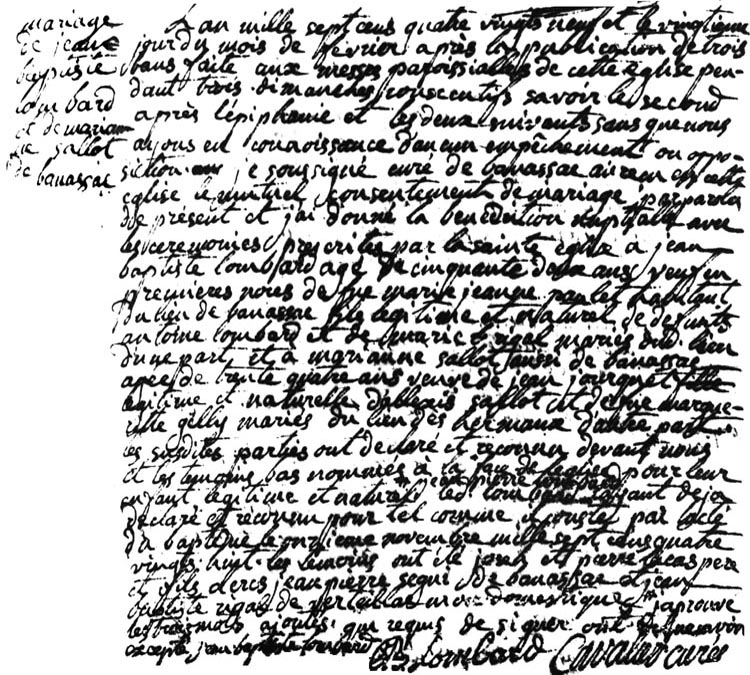 mariage
de jean
baptiste
lombard
et de mariane
sallot
de banassac
L'an mille sept cens quatre vingts neuf et le vingtieme
jour du mois de fevrier après la publication de trois
bans faite aux messes paroissialles de cette église pen-
dant trois dimanches consecutifs savoir le second
après l'épiphanie et les deux suivents sans que nous
ayons eu connoissance d'aucun empêchement ou oppo-
sition je soussigné curé de banassac ai reçu en cette
église le mutuel consentement de mariage par parole
de présent et j'ai donné la bénédiction nuptialle avec
les ceremonies prescrites par la sainte église a jean
baptiste lombard agé de cinquante deux ans veuf en
premieres noces de marie jeanne habitant
du lieu de banassac fils legitime et naturel de defunts
antoine lombard et de marie mariés dud. lieu
d'une part, et a marianne sallot aussi de banassac
agée de trente quatre ans veuve de jean fille
legitime et naturelle d'alexis sallot et de marque-
ritte gelly mariés du lieu des hermaux d'autre part
les susdites parties ont declaré et reconnu devant nous
et les temoins bas nommés a la face de l'église pour leur
jean pierre lombard
enfant legitime et naturel led. lombard l'ayant deja
declaré et reconnu pour tel comme il conste par l'acte
du baptême le onzieme novembre mille sept cens quatre
vingts huit. les temoins ont été pierre pere
et fils clercs jean pierre segui de banassac et jean
baptiste de domestique j'aprouve
les trois mots ajoutés qui requis de signer ont de ne savoir
excepté jean baptiste lombard
lombard Cavalier curé